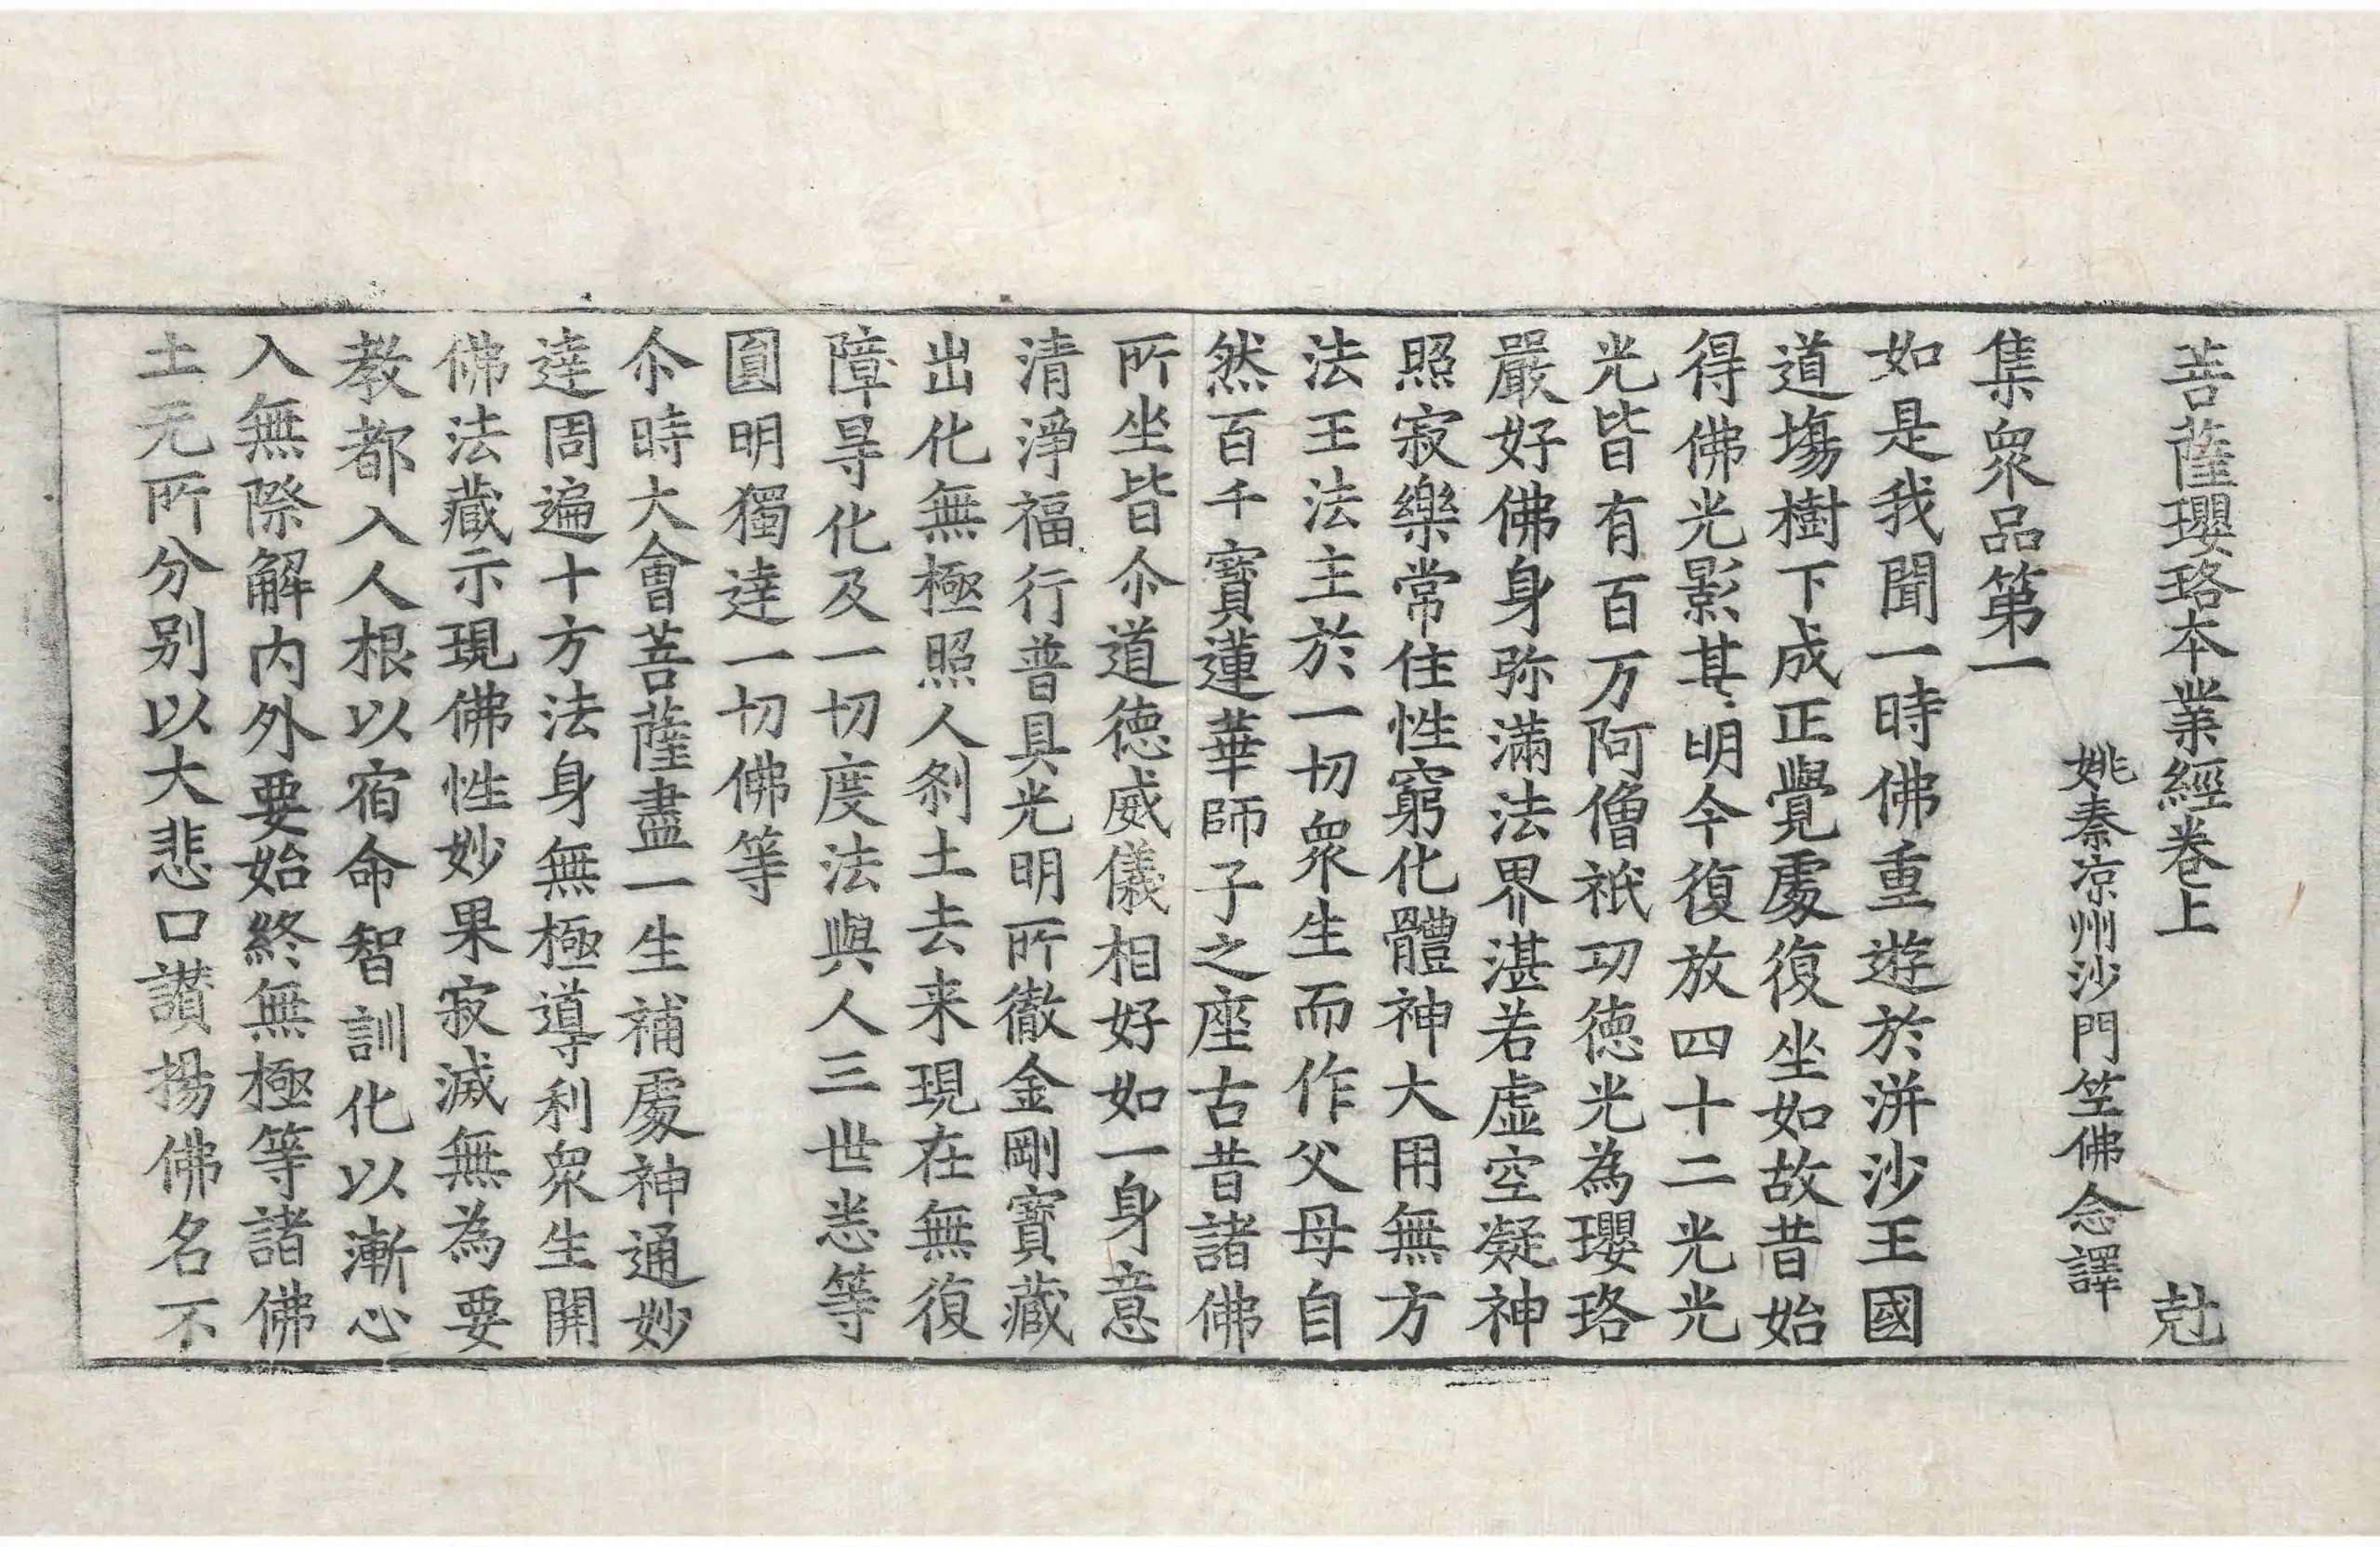 菩薩瓔珞本業經卷上 尅
姚秦涼州沙門竺佛念譯
集衆品第一
如是我聞一時佛重遊於洴沙王國
道塲樹下成正覺處復坐如故昔始
得佛光影甚明今復放四十二光光
光皆有百万阿僧祇功德光為瓔珞
嚴好佛身弥滿法界湛若虛空凝神
照寂樂常住性窮化體神大用無方
法王法主於一切衆生而作父母自
然百千寶蓮華師子之座古昔諸佛
所坐皆尒道德威儀相好如一身意
清淨福行普具光明所徹金剛寶藏
出化無極照人剎土去来現在無復
障㝵化及一切度法與人三世悉等
圓明獨達一切佛等
尒時大會菩薩盡一生補處神通妙
達周遍十方法身無極導利衆生開
佛法藏示現佛性妙果寂滅無為要
教都入人根以宿命智訓化以漸心
入無際解内外要始終無極等諸佛
土元所分别以大悲口讃揚佛名不